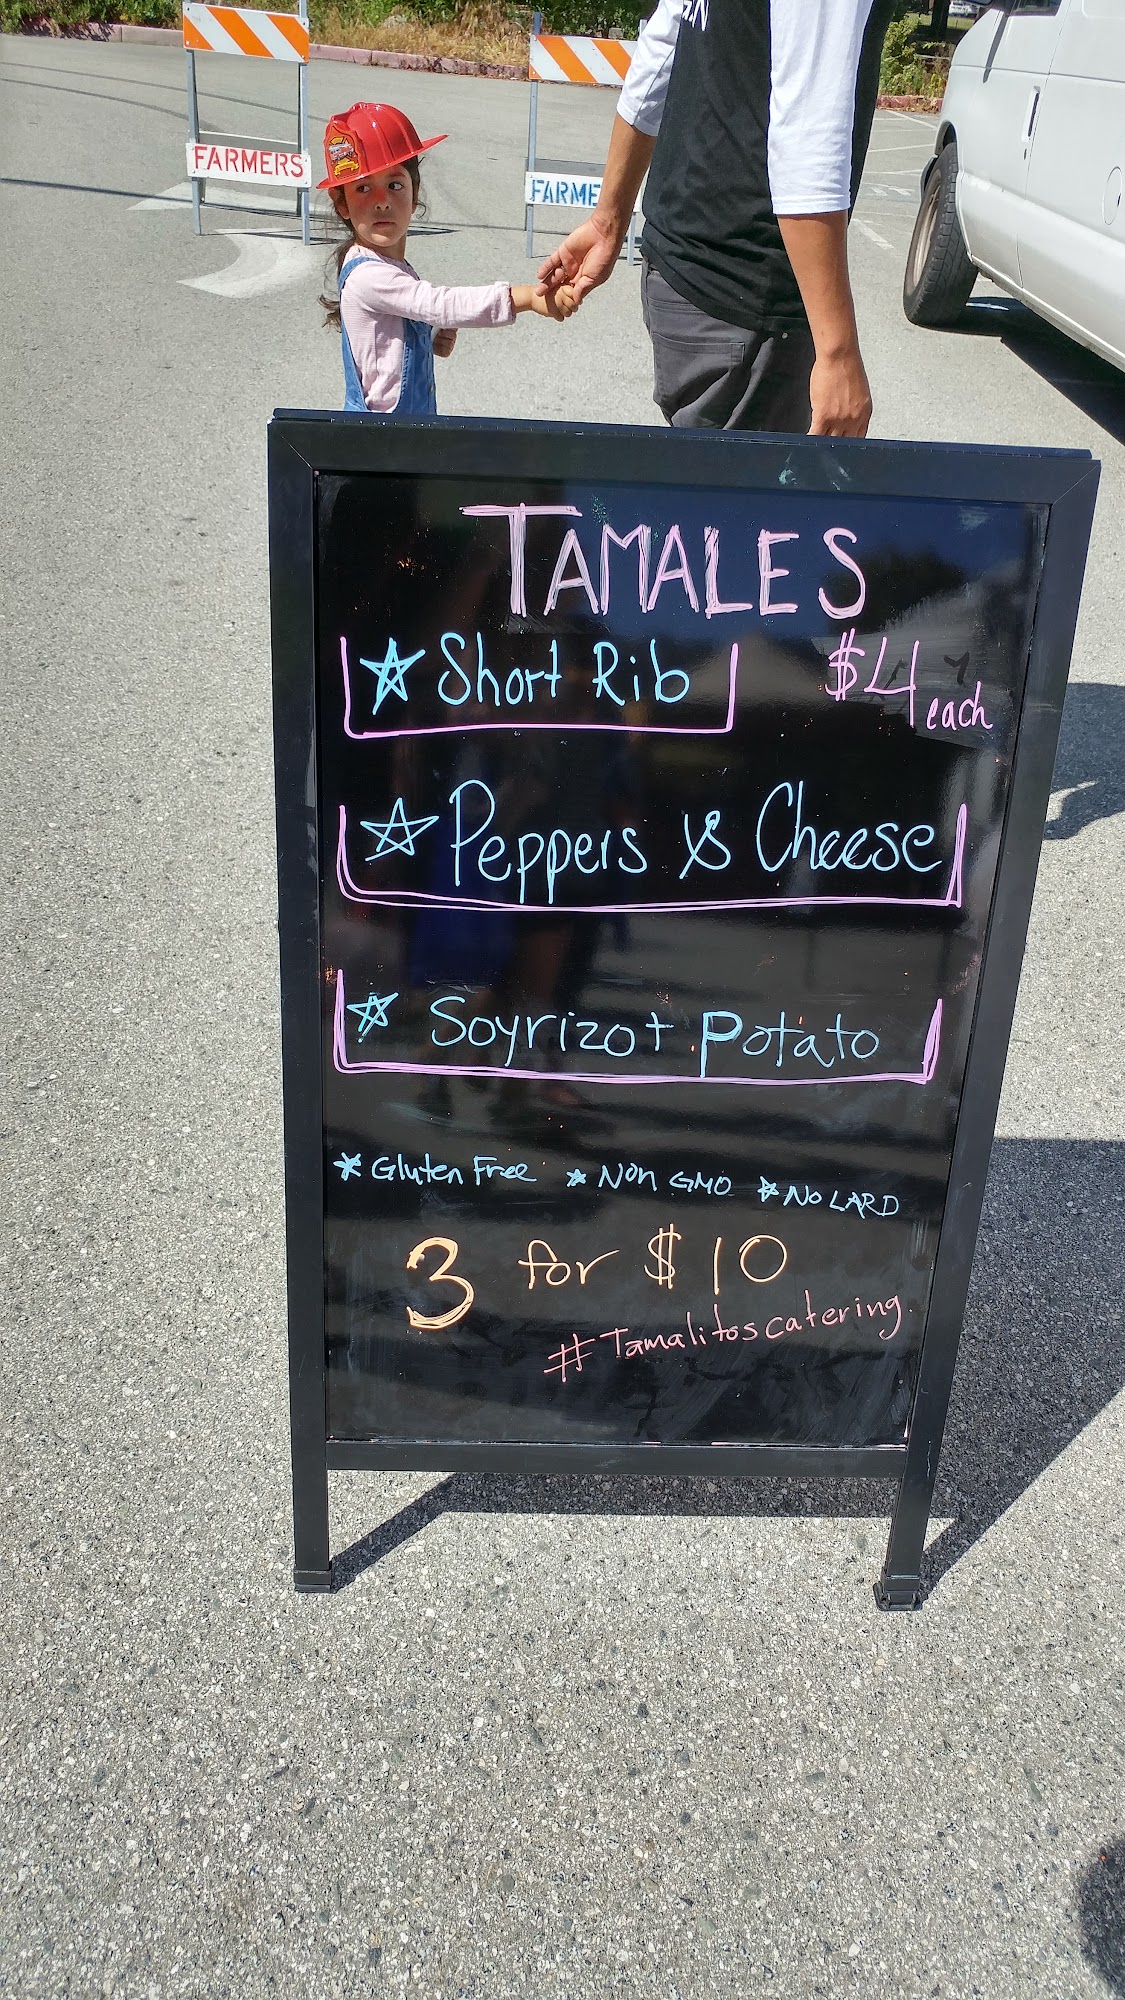 FARMERS
FARME
TAMALES
Short Rib
$4 each
Peppers & Cheese
Soyrizo + Potato
Gluten Free
Non GMO
No LARD
3 for $10
#Tamalitoscatering